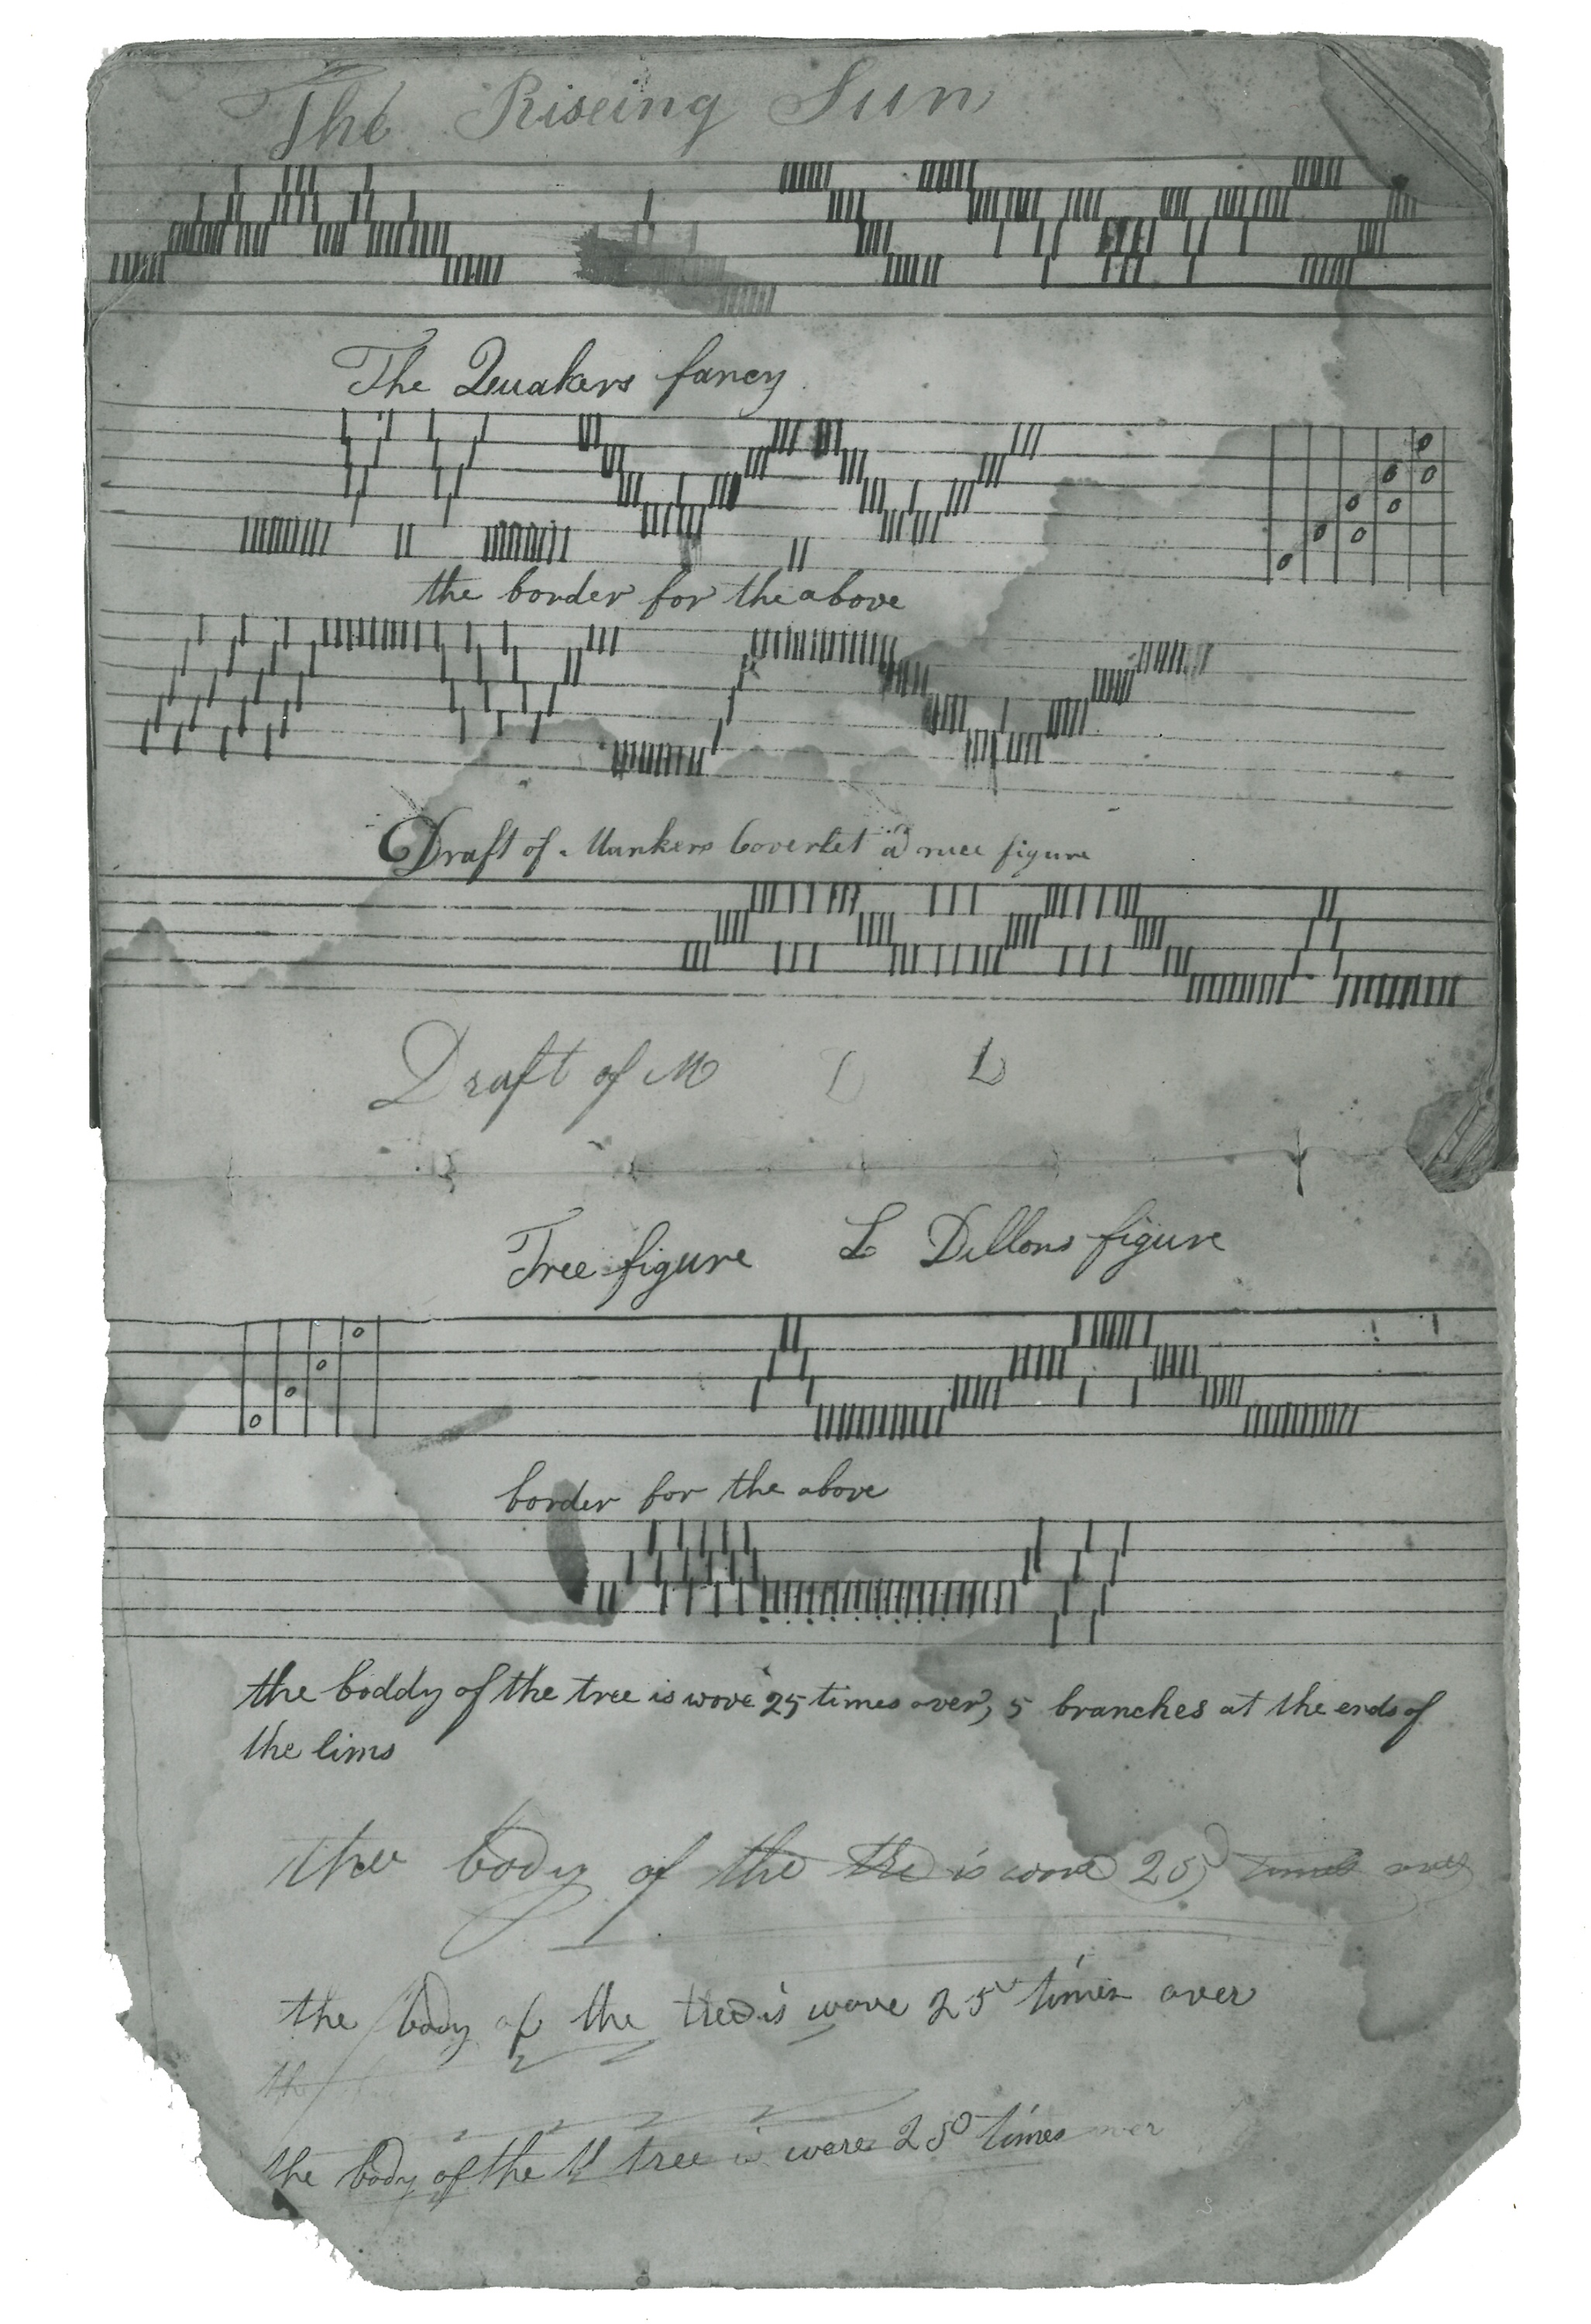 The Riseing Sun
The Quakers fancy
the border for the above
Draft of Coverlet a nice figure
Draft of M L
Tree figure L Dillons figure
border for the above
the boddy of the tree is wove 25 times over, 5 branches at the ends of
the lims
the body of the tre is wove 25 times over
the body of the tree is wove 25 times over
the
the body of the tree is wore 25 times over